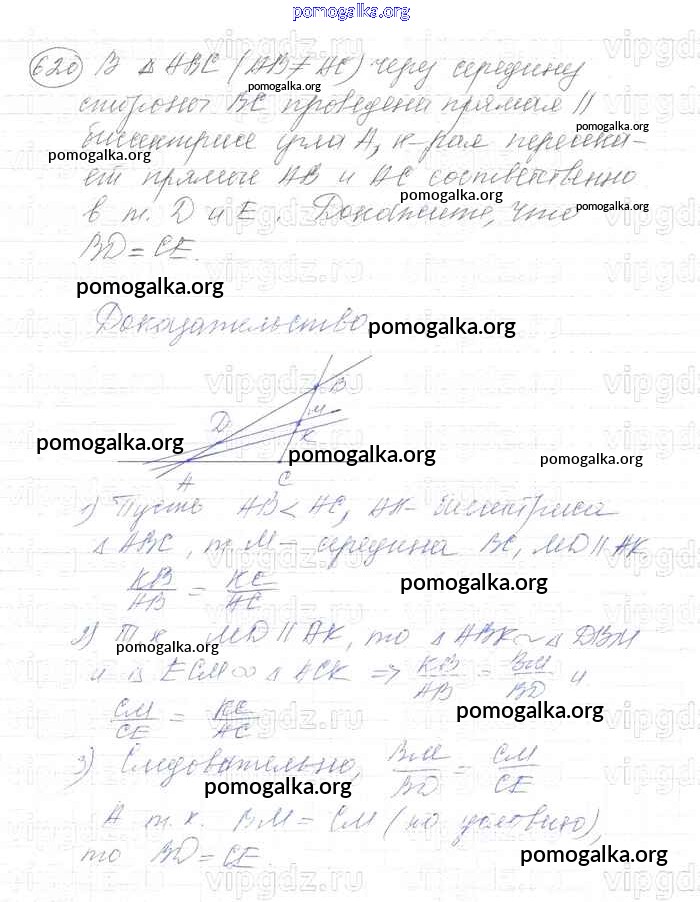 pomogalka.org
620 В △ ABC (AB ≠ AC) через середину
pomogalka.org
стороны BC проведена прямая ||
pomogalka.org
биссектрисе угла A, к-рая пересека-
pomogalka.org
ет прямые AB и AC соответственно
pomogalka.org
в т. D и E. Докажите, что
pomogalka.org
BD = CE.
pomogalka.org
Доказательство
pomogalka.org
B
M
D
K
pomogalka.org
pomogalka.org
pomogalka.org
A
C
1) Пусть AB < AC, AK - биссектриса
△ ABC, т. M - середина BC, MD || AK
KB/AB = KC/AC
pomogalka.org
2) Т.к. MD || AK, то △ ABK ~ △ DBM
pomogalka.org
и △ ECM ∾ △ ACK ⇒ KB/AB = BM/BD и
pomogalka.org
CM/CE = KC/AC
3) Следовательно, BM/BD = CM/CE
pomogalka.org
А т.к. BM = CM (по условию),
то BD = CE.
pomogalka.org
vipgdz.ru